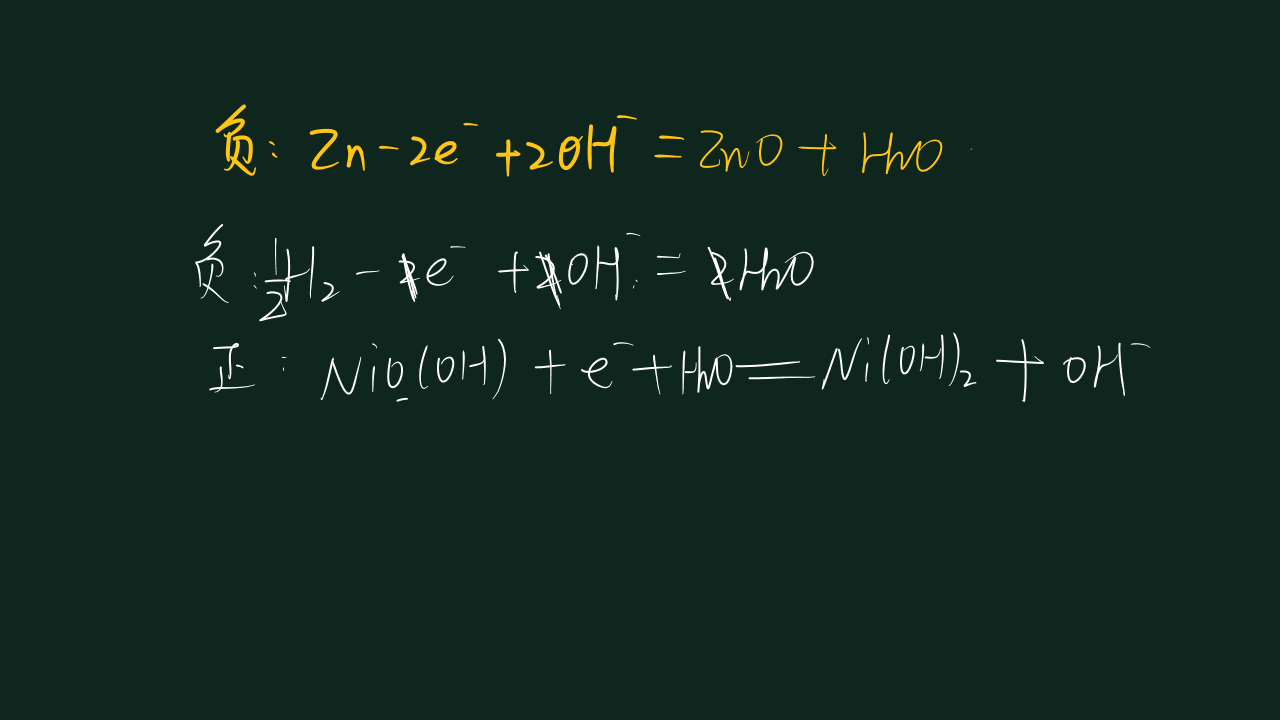 负: Zn-2e⁻+2OH⁻=ZnO+H₂O
负: ½H₂-e⁻+OH⁻=H₂O
正: NiO(OH)+e⁻+H₂O=Ni(OH)₂+OH⁻